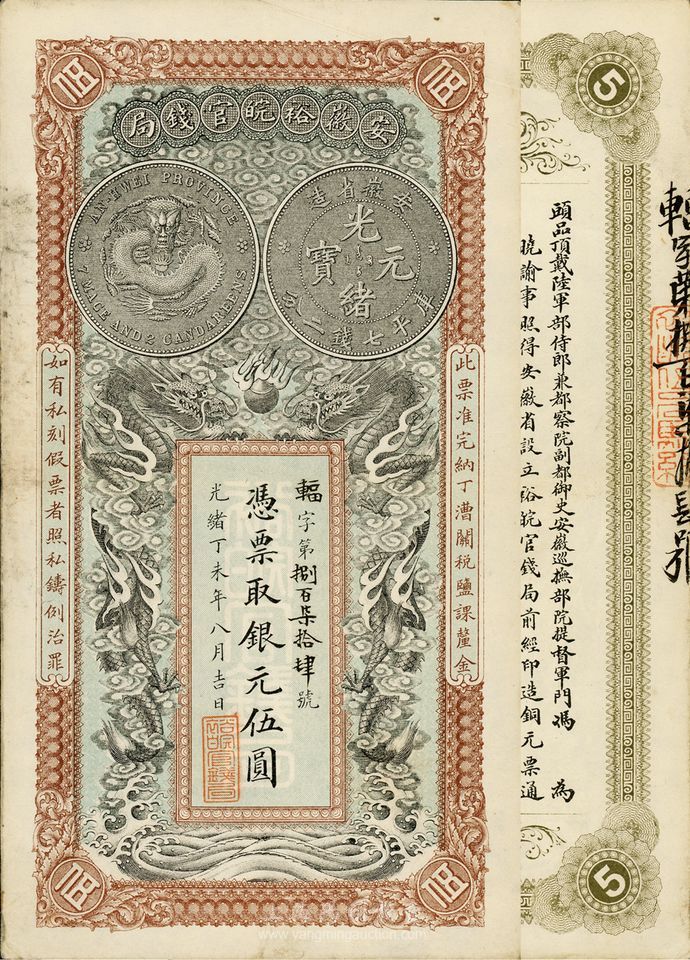 伍
伍
安徽裕皖官錢局
AN-HWEI PROVINCE
7 MACE AND 2 CANDAREENS
安徽省造
光緒元寶
庫平七錢二分
此票准完納丁漕關税鹽課釐金
如有私刻假票者照私鑄例治罪
輻字第捌百柒拾肆號
憑票取銀元伍圓
光緒丁未年八月吉日
伍
伍
5
頭品頂戴陸軍部侍郎兼都察院副都御史安徽巡撫部院提督軍門馮 為
曉諭事照得安徽省設立裕皖官錢局前經印造銅元票通
5
www.yangmingauction.com